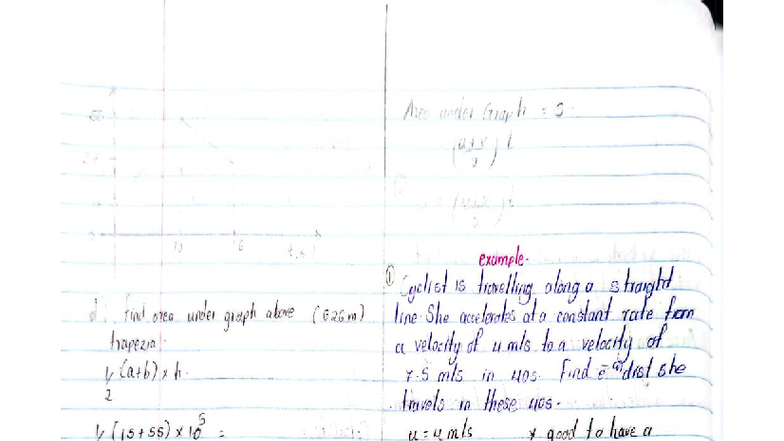 t, s
10
16
d: Find area under graph above (626m)
trapezia:
½(a+b) × h.
½(15+55) × 10
Area under Graph = S.
(u+v/2) t
example.
① Cyclist is travelling along a straight
line. She accelerates at a constant rate from
a velocity of 4 m/s to a velocity of
7.5 m/s in 40s. Find dist she
travels in these 40s.
u = 4 m/s * good to have a